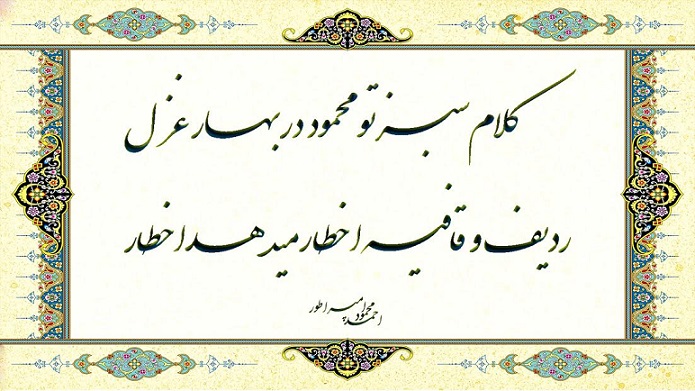 کلام سبز تو محمود در بهار غزل
ردیف و قافیه اخطار میدهد اخطار
احمد محمود امپراطور